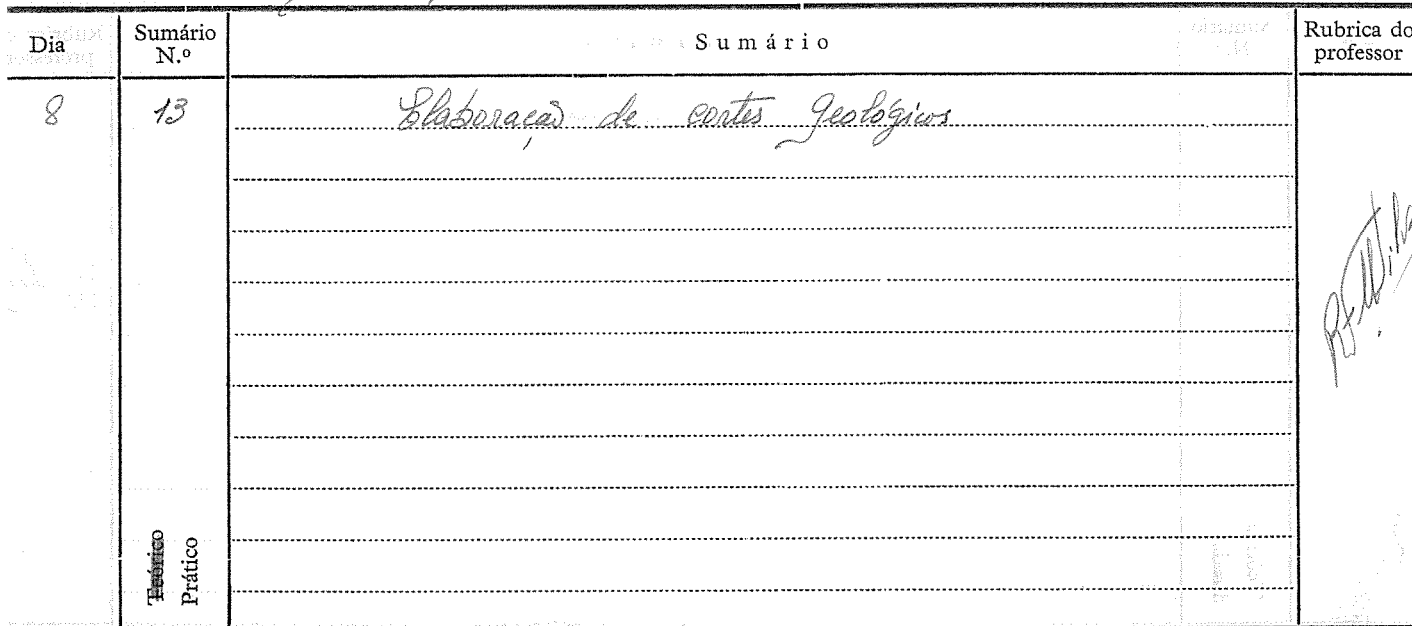 Dia Sumário N.º Sumário Rubrica do professor
8 13 Elaboração de cortes geológicos
Teórico
Prático